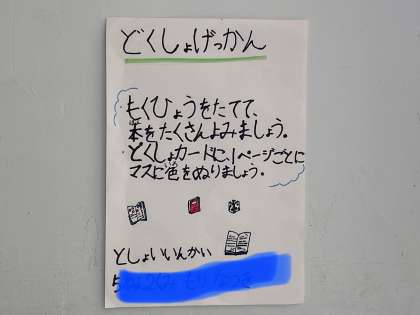 どくしょげっかん
もくひょうをたてて、
本をたくさんよみましょう。
どくしょカードに、1ページごとに
マスに色をぬりましょう。
としょいいんかい